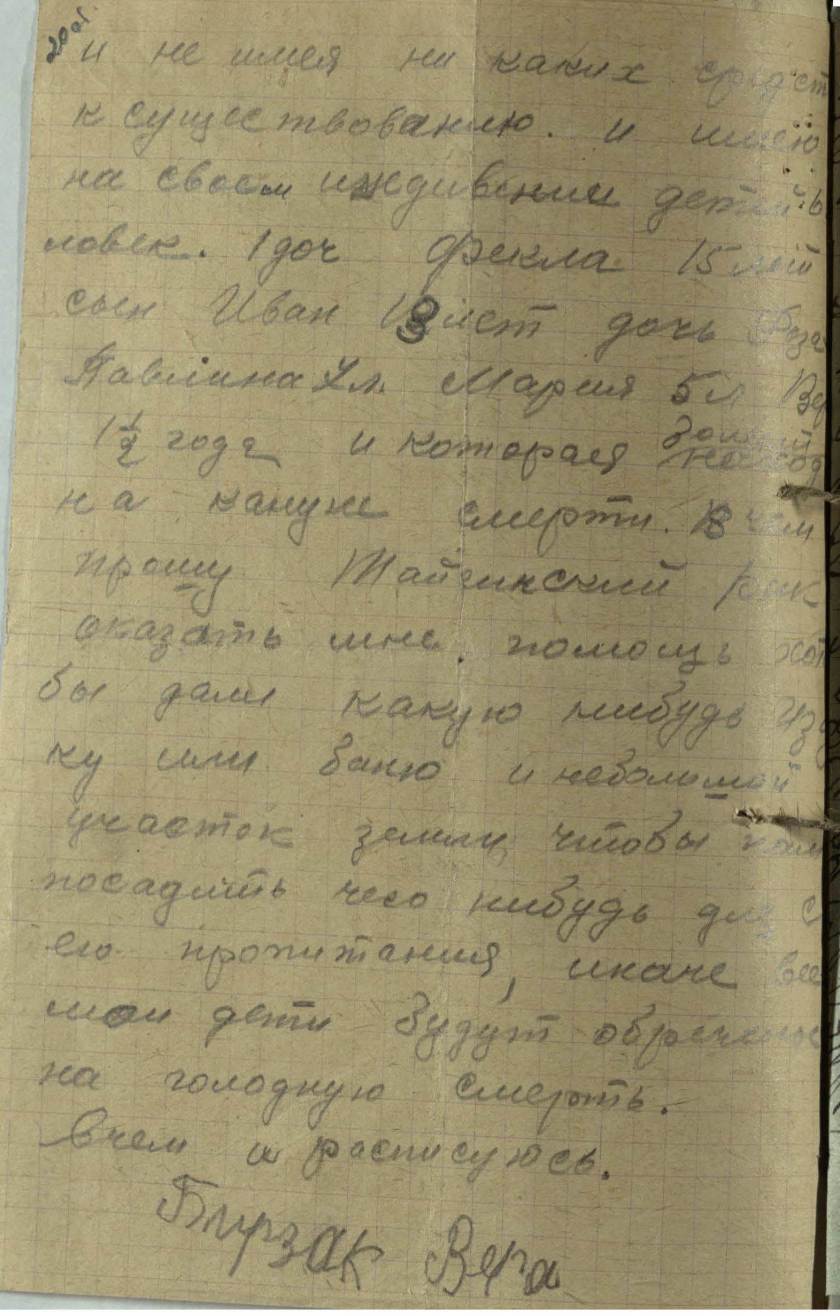 20 об
и не имея ни каких средст
к существованию. и имею
на своем иждивении детей 6
ловек. 1 доч Фекла 15 лет
сын Иван 13 лет дочь
Павлина 7 л. Мария 5 л Вер
1½ года и которая
на кануне смерти. В чем
прошу Тайгинский рик
оказать мне. помощь хот
бы дали какую нибудь изб
ку или баню и неболшой
участок земли, чтобы
посадить чего нибудь для с
его пропитания, иначе все
мои дети будут обречены
на голодную смерть.
В чем и расписуюсь.
Бирзак Вера